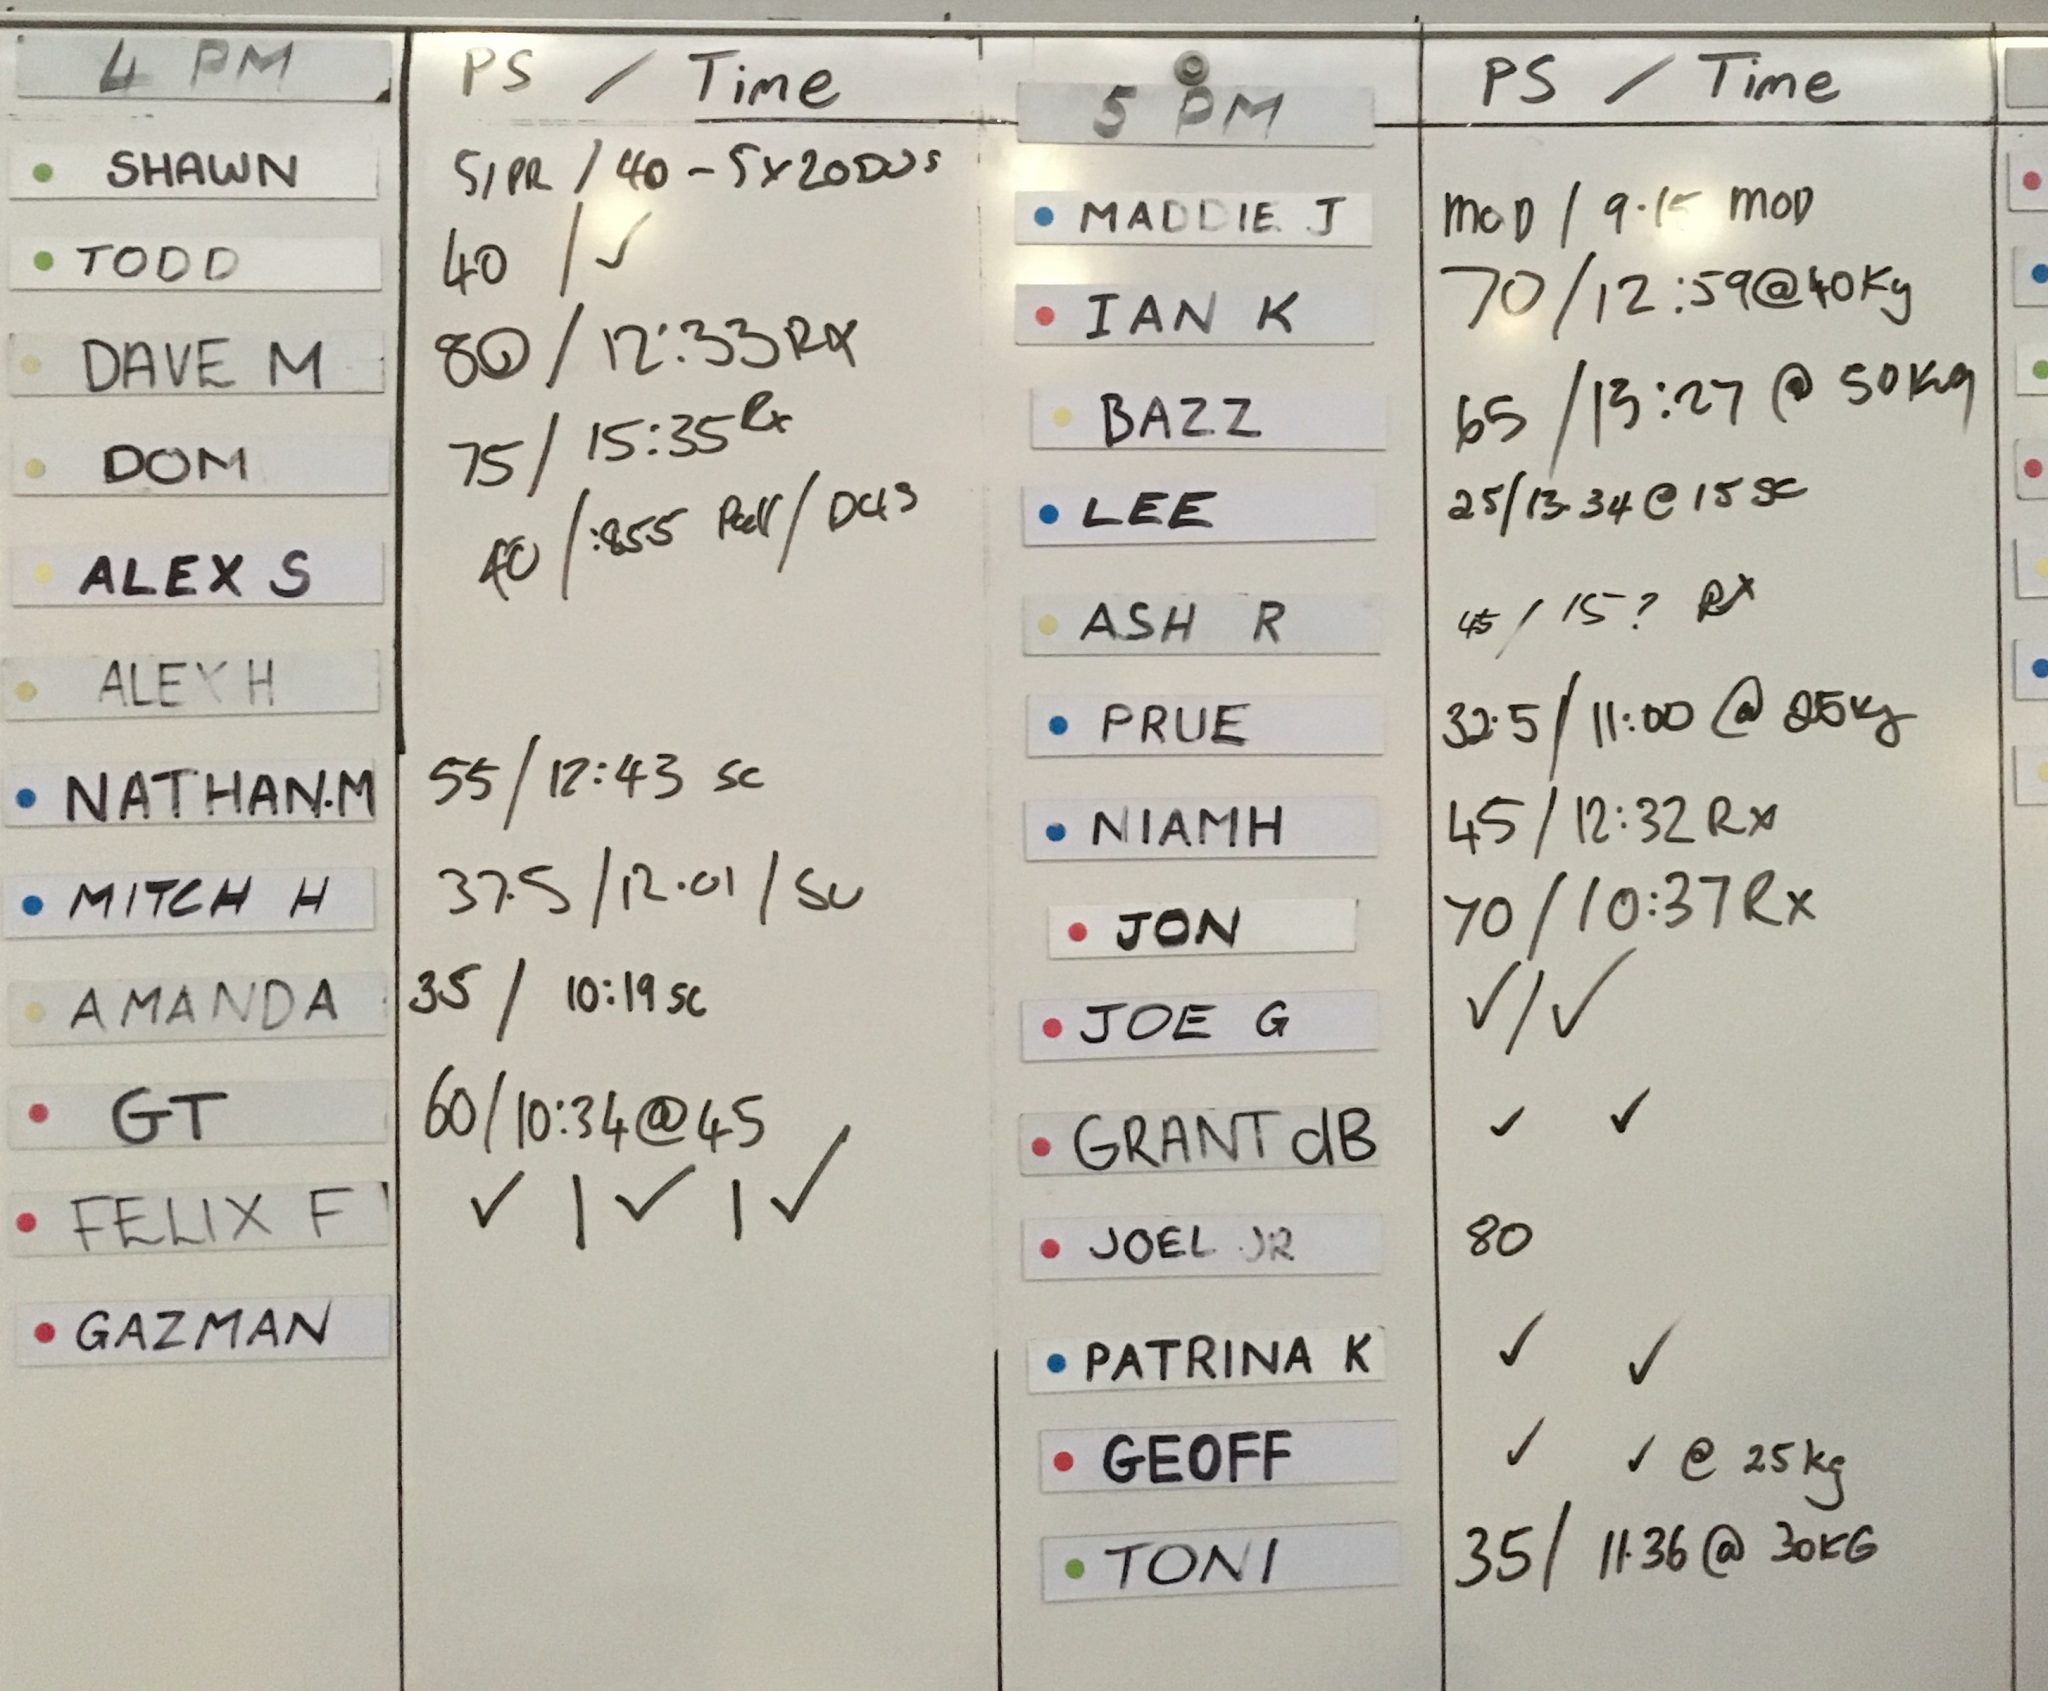 4 PM PS / Time
SHAWN 51PR / 40 - 5x20DUS
TODD 40 / ✓
DAVE M 80 / 12:33 RX
DOM 75 / 15:35 Rx
ALEX S 40 / :855
ALEX H
NATHAN.M 55 / 12:43 SC
MITCH H 37.5 / 12.01 /
AMANDA 35 / 10:19 SC
GT 60 / 10:34 @ 45
FELIX F ✓ | ✓ | ✓
GAZMAN
5 PM PS / Time
MADDIE J MOD / 9.15 MOD
IAN K 70 / 12:59 @ 40Kg
BAZZ 65 / 13:27 @ 50Kg
LEE 25 / 13.34 @ 15 SC
ASH R 45 / 15? RX
PRUE 32.5 / 11:00 @ 25Kg
NIAMH 45 / 12:32 Rx
JON 70 / 10:37 Rx
JOE G ✓ / ✓
GRANT dB ✓ ✓
JOEL JR 80
PATRINA K ✓ ✓
GEOFF ✓ ✓ @ 25kg
TONI 35 / 11.36 @ 30KG